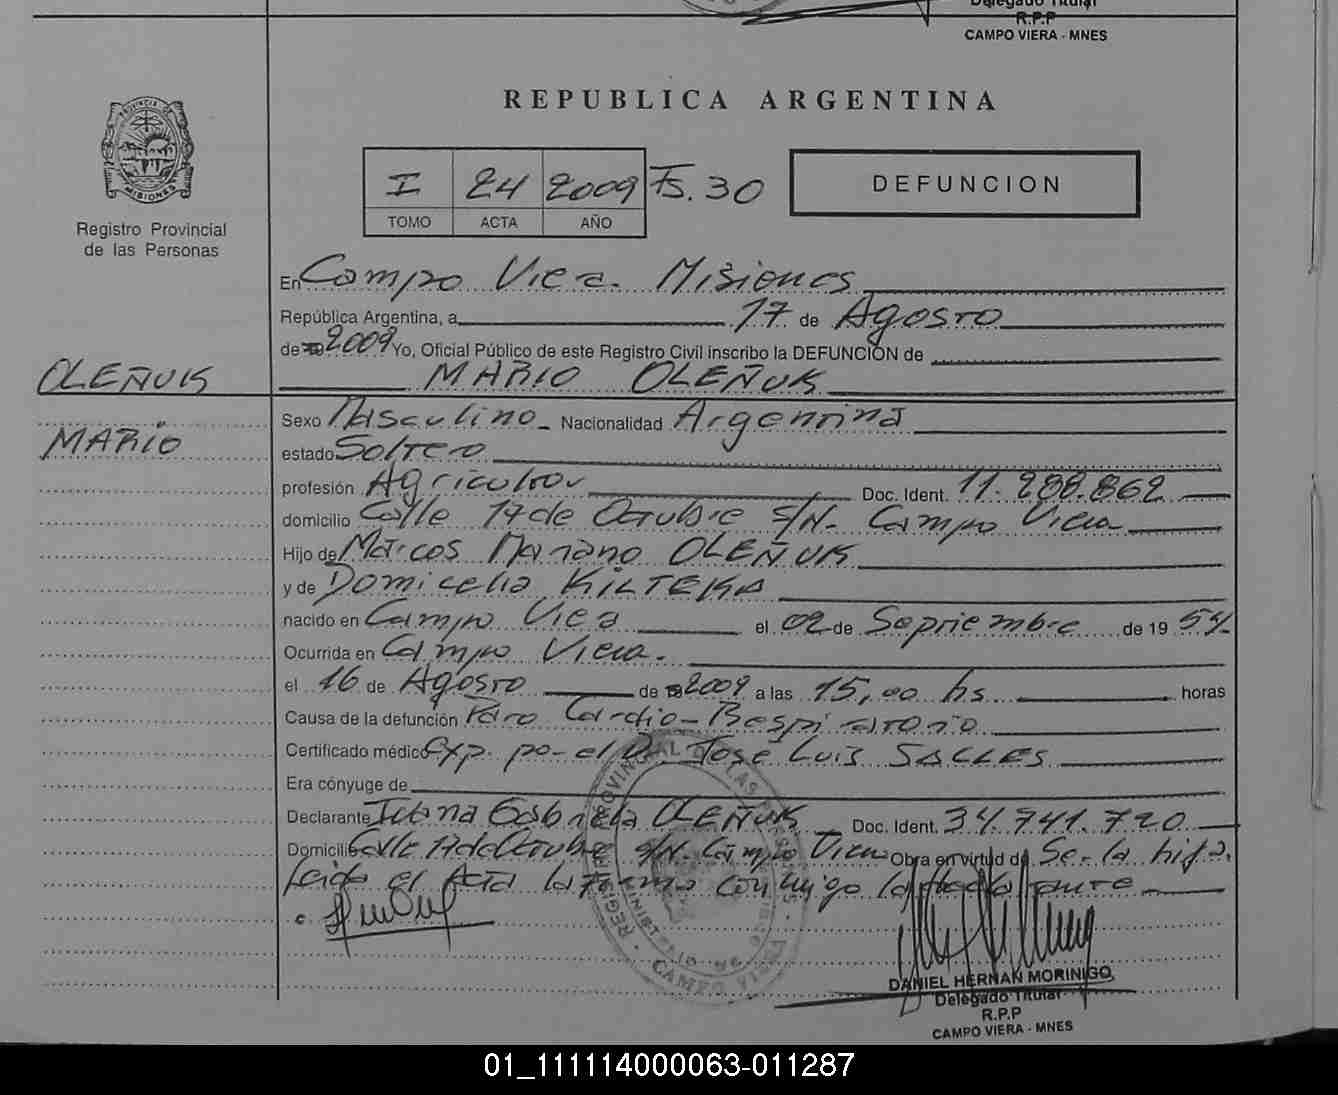 Delegado Titular
R.P.P
CAMPO VIERA - MNES
PROVINCIA DE
MISIONES
REPUBLICA ARGENTINA
I 24 2009 Fs. 30
DEFUNCION
TOMO ACTA AÑO
Registro Provincial
de las Personas
En Campo Viera Misiones
República Argentina, a 17 de Agosto
de 2009 Yo, Oficial Público de este Registro Civil inscribo la DEFUNCIÓN de
OLEÑUK MARIO OLEÑUK
Sexo Masculino Nacionalidad Argentina
MARIO
estado Soltero
profesión Agricultor Doc. Ident. 11.288.862
domicilio Calle 17 de Octubre S/N. Campo Viera
Hijo de Marcos Mariano OLEÑUK
y de Domicelia KILTEKA
nacido en Campo Viera el 02 de Septiembre de 19 54
Ocurrida en Campo Viera.
el 16 de Agosto de 2009 a las 15,00 hs horas
Causa de la defunción Paro Cardio-Respiratorio
Certificado médico Exp. por el Dr. José Luis SALLES
Era cónyuge de
Declarante Gabriela OLEÑUK Doc. Ident. 34.741.720
Domicilio Calle 17 de Octubre S/N. Campo Viera Obra en virtud de Ser la hija.
Leida el Acta la Firma conmigo la declarante
DANIEL HERNAN MORINIGO
Delegado Titular
R.P.P
CAMPO VIERA - MNES
01_111114000063-011287